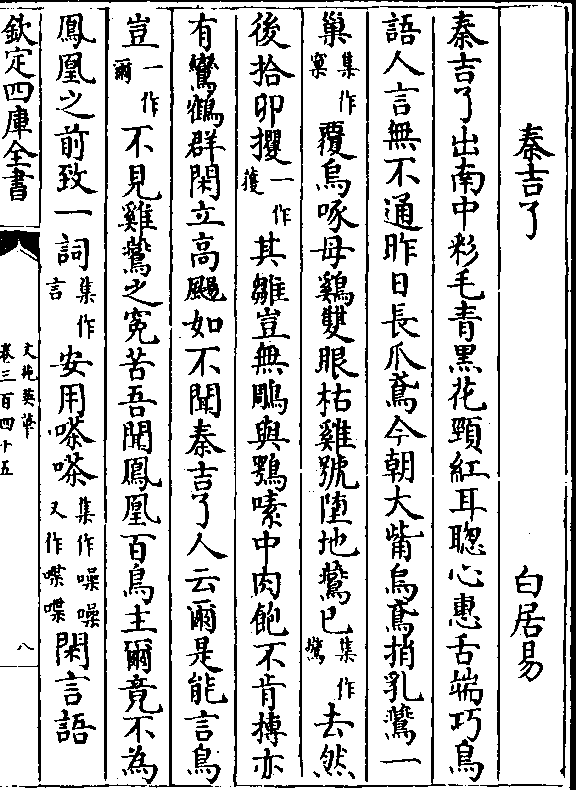 秦吉了 白居易
秦吉了出南中彩毛青黑花頸紅耳聦心惠舌端巧鳥
語人言無不通昨日長爪鳶今朝大觜烏鳶捎乳鷰一
巢集作窠覆烏啄母鷄雙眼枯雞號堕地鷰已集作驚去然
後拾卵攫一作獲其雛豈無鵰與鶚嗉中肉飽不肯搏亦
有鸞鶴群閑立高颺如不聞秦吉了人云爾是能言鳥
豈一作爾不見雞鷰之寃苦吾聞鳳凰百鳥主爾竟不為
鳳凰之前致一詞集作言安用嗏嗏集作噪噪又作喋喋閑言語
欽定四庫全書
文苑英華
卷三百四十五
八